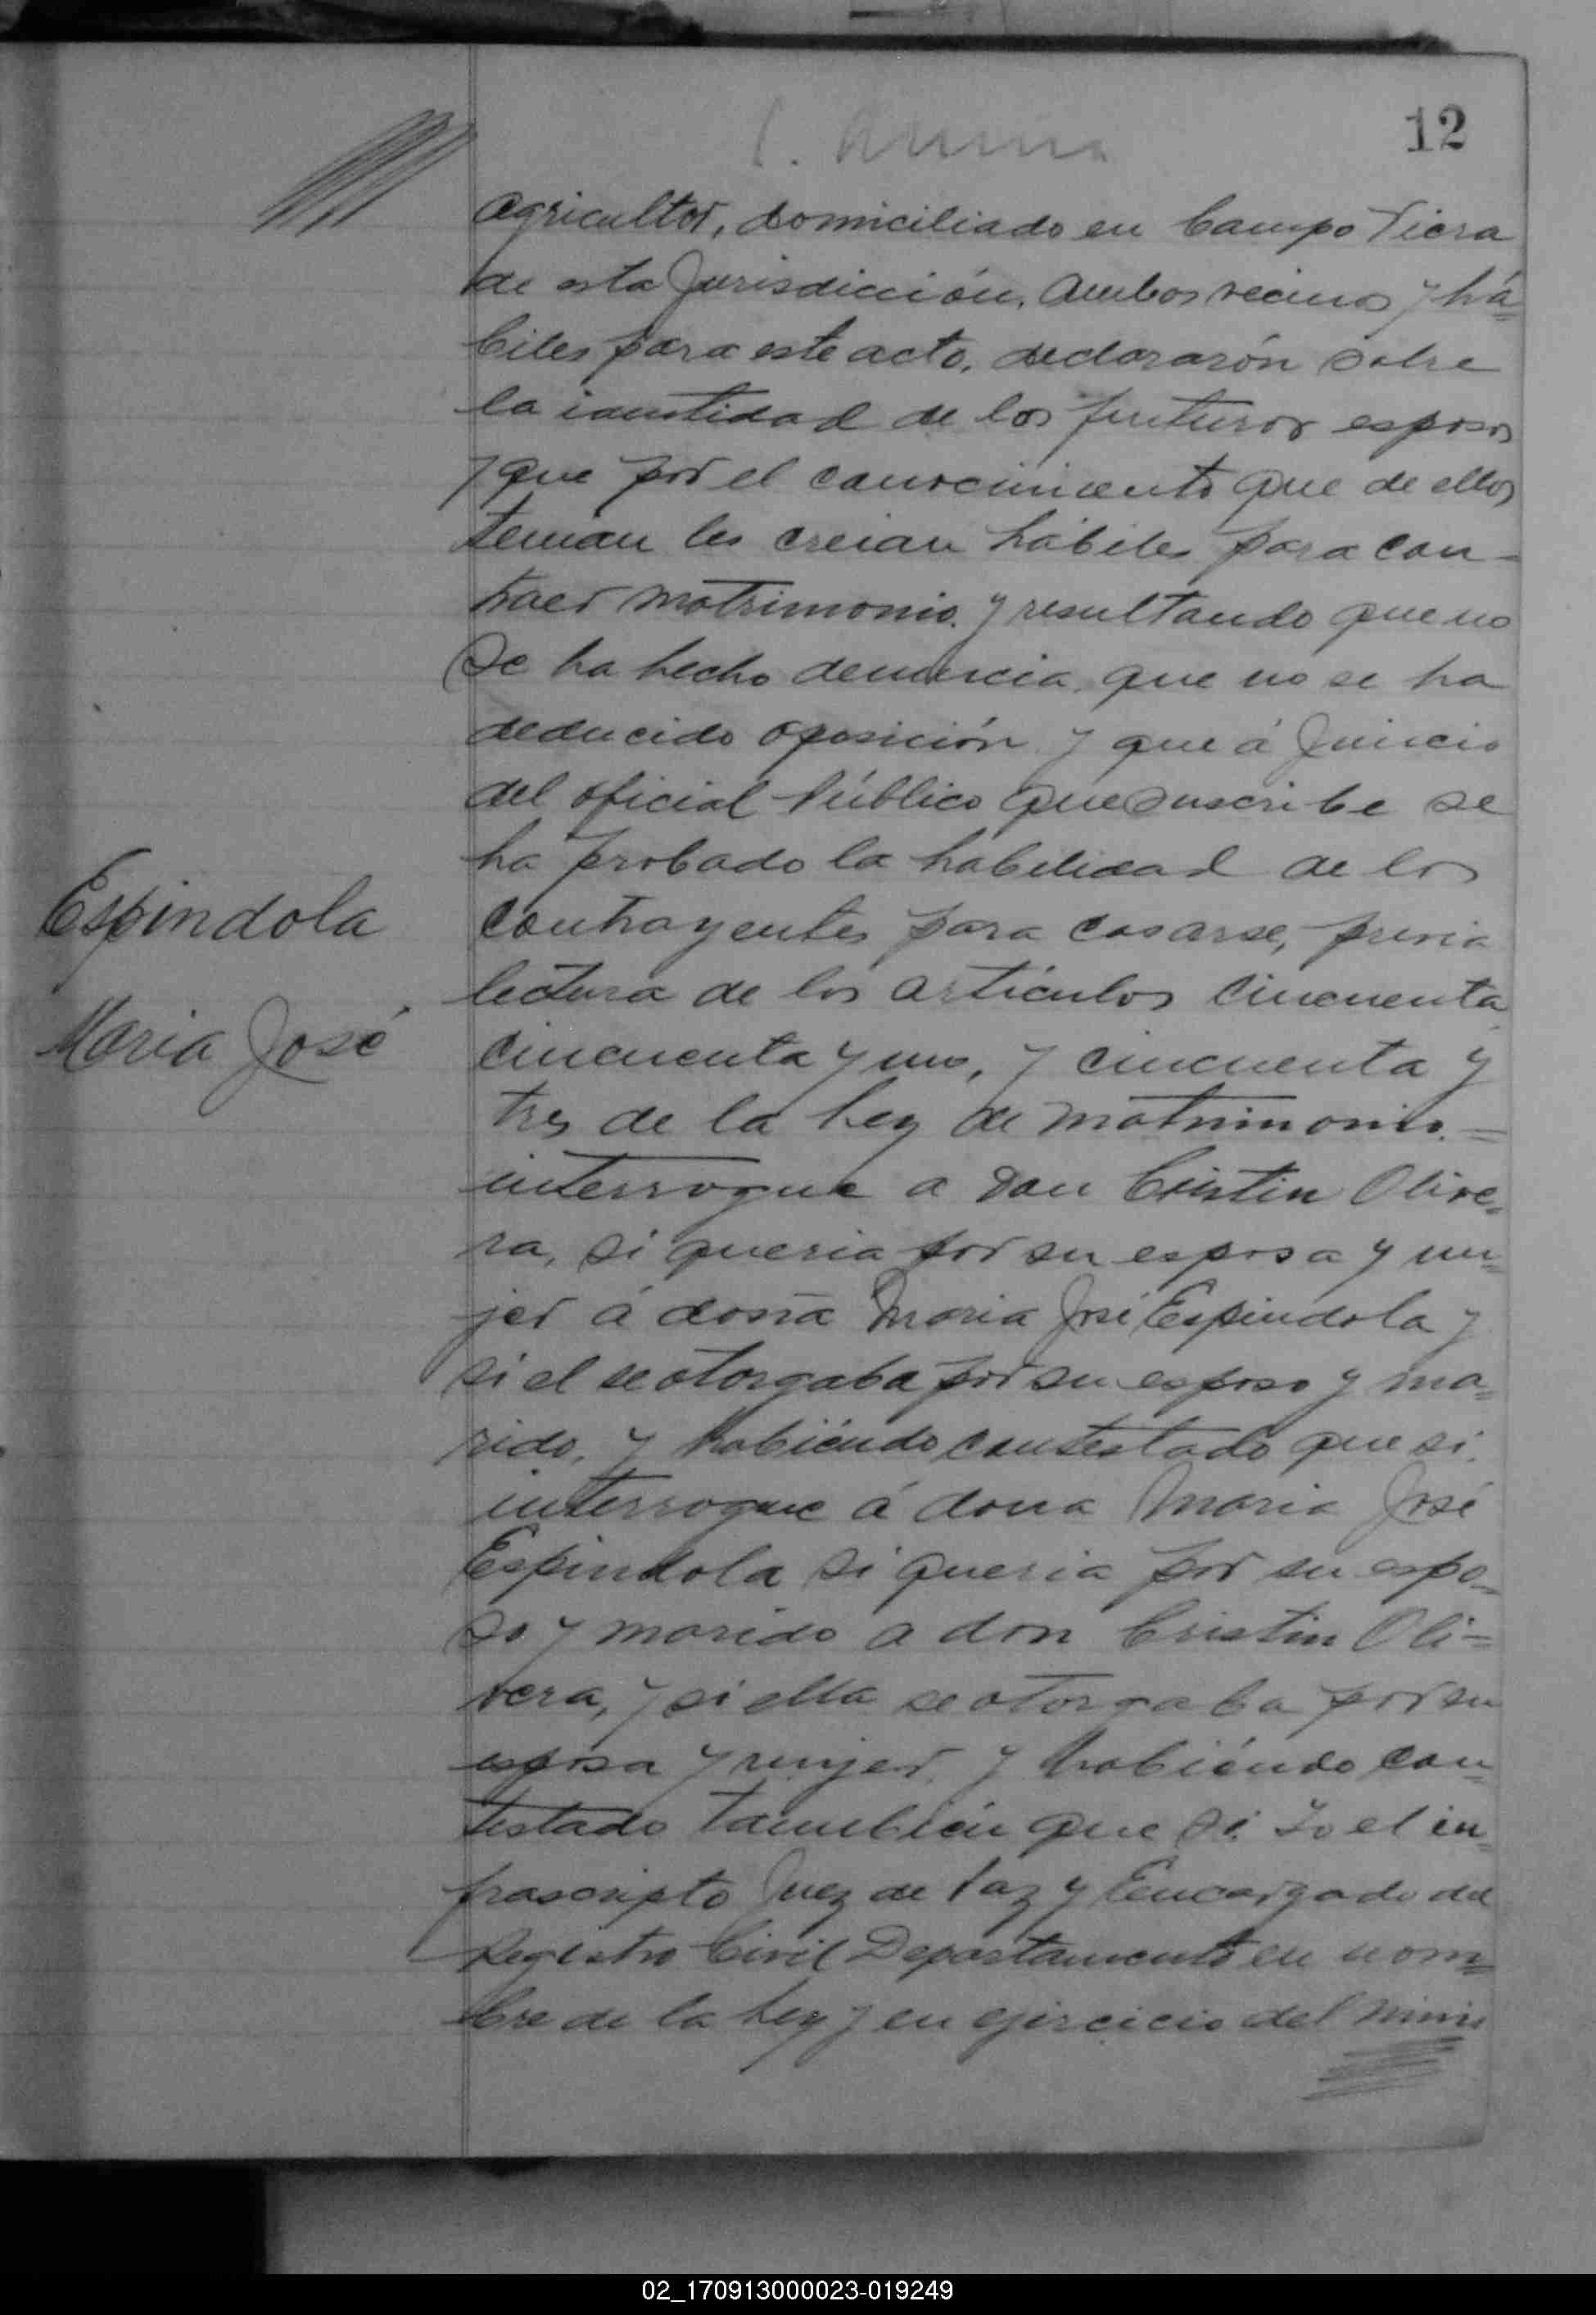 12
agricultor, domiciliado en Campo Viera
de esta Jurisdicción. Ambos vecinos y há=
biles para este acto, declararón sobre
la identidad de los futuros esposos
y que por el conocimiento que de ellos
tenian les creian hábiles para con-
traer matrimonio. y resultando que no
Se ha hecho denuncia, que no se ha
deducido oposición y que á Juicio
del oficial Público que suscribe se
ha probado la habilidad de los
Espindola
contrayentes para casarse, previa
lectura de los artículos cincuenta
Maria José
cincuenta y uno, y cincuenta y
tres de la Ley de matrimonio. =
interrogue a Don Cristin Olive=
ra, si queria por su esposa y mu=
jer á dona Maria José Espindola y
si el se otorgaba por su esposo y ma=
rido, y habiéndo contestado que si.
interrogue á dona Maria José
Espindola si queria por su espo=
so y marido a don Cristin Oli=
vera, y si ella se otorgaba por su
esposa y mujer, y habiéndo con=
testado también que si. Yo el in=
frascripto Juez de Paz y Encargado del
Registro Civil Departamento en nom=
bre de la Ley y en ejercicio del minis
02_170913000023-019249